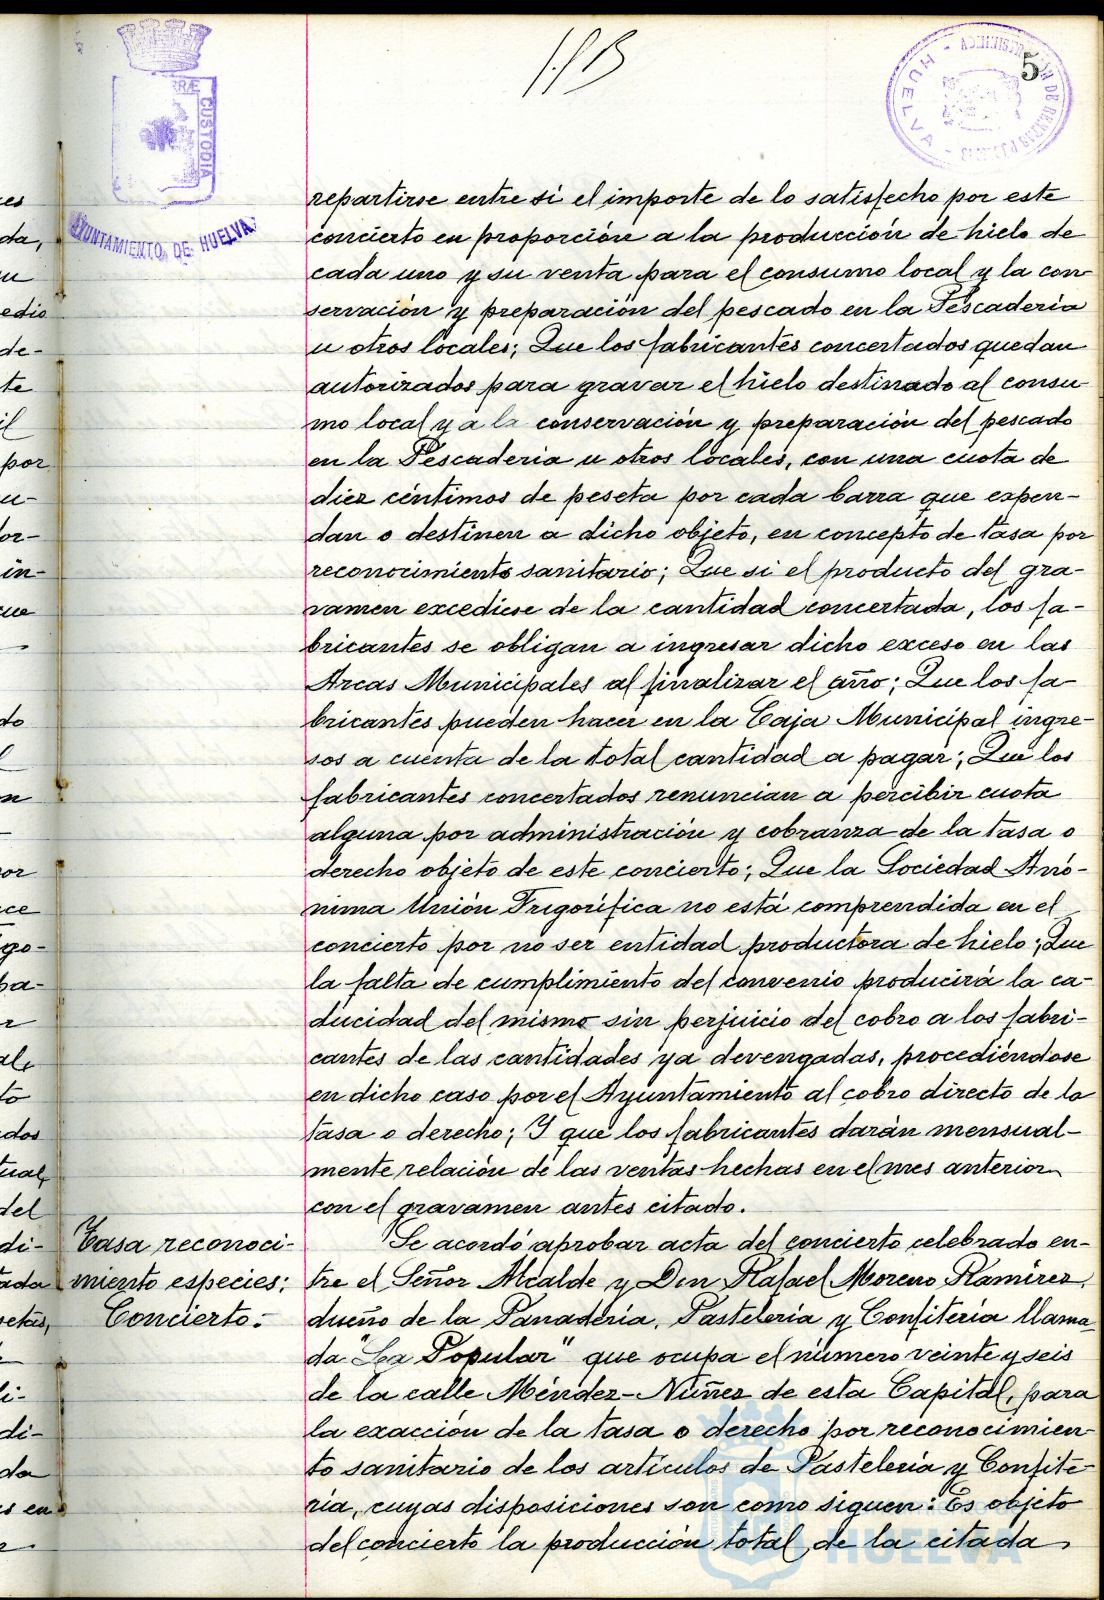 5
TERRÆ CUSTODIA
AYUNTAMIENTO DE HUELVA
HUELVA
repartirse entre si el importe de lo satisfecho por este
concierto en proporción a la producción de hielo de
cada uno y su venta para el consumo local y la con-
servación y preparación del pescado en la Pescaderia
u otros locales; Que los fabricantes concertados quedan
autorizados para gravar el hielo destinado al consu-
mo local y a la conservación y preparación del pescado
en la Pescaderia u otros locales, con una cuota de
diez céntimos de peseta por cada barra que expen-
dan o destinen a dicho objeto, en concepto de tasa por
reconocimiento sanitario; Que si el producto del gra-
vamen excediese de la cantidad concertada, los fa-
bricantes se obligan a ingresar dicho exceso en las
Arcas Municipales al finalizar el año; Que los fa-
bricantes pueden hacer en la Caja Municipal ingre-
sos a cuenta de la total cantidad a pagar; Que los
fabricantes concertados renuncian a percibir cuota
alguna por administración y cobranza de la tasa o
derecho objeto de este concierto; Que la Sociedad Anó-
nima Unión Frigorífica no está comprendida en el
concierto por no ser entidad productora de hielo; Que
la falta de cumplimiento del convenio producirá la ca-
ducidad del mismo sin perjuicio del cobro a los fabri-
cantes de las cantidades ya devengadas, procediéndose
en dicho caso por el Ayuntamiento al cobro directo de la
tasa o derecho; Y que los fabricantes darán mensual-
mente relación de las ventas hechas en el mes anterior
con el gravamen antes citado.
Tasa reconoci-
miento especies:
Concierto.-
Se acordó aprobar acta del concierto celebrado en-
tre el Señor Alcalde y Don Rafael Moreno Ramírez,
dueño de la Panaderia, Pasteleria y Confiteria llama-
da "La Popular" que ocupa el número veinte y seis
de la calle Méndez-Núñez de esta Capital, para
la exacción de la tasa o derecho por reconocimien-
to sanitario de los artículos de Pasteleria y Confite-
ría, cuyas disposiciones son como siguen: Es objeto
del concierto la producción total de la citada
HUELVA